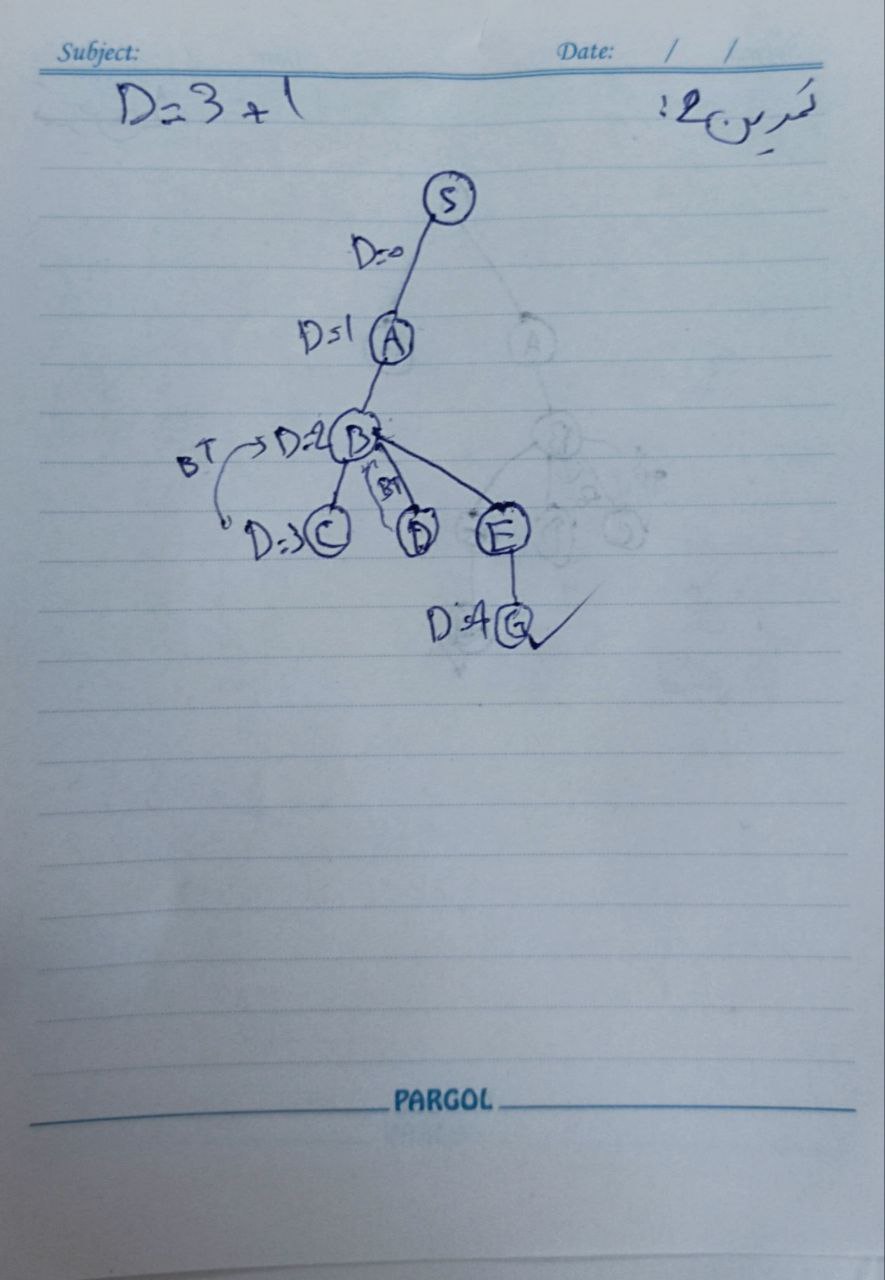 Subject:
Date: / /
D=3+1
تمرین 2:
S
D=0
D=1 A
BT D=2 B
BT
D=3 C D E
D=4 G
PARGOL